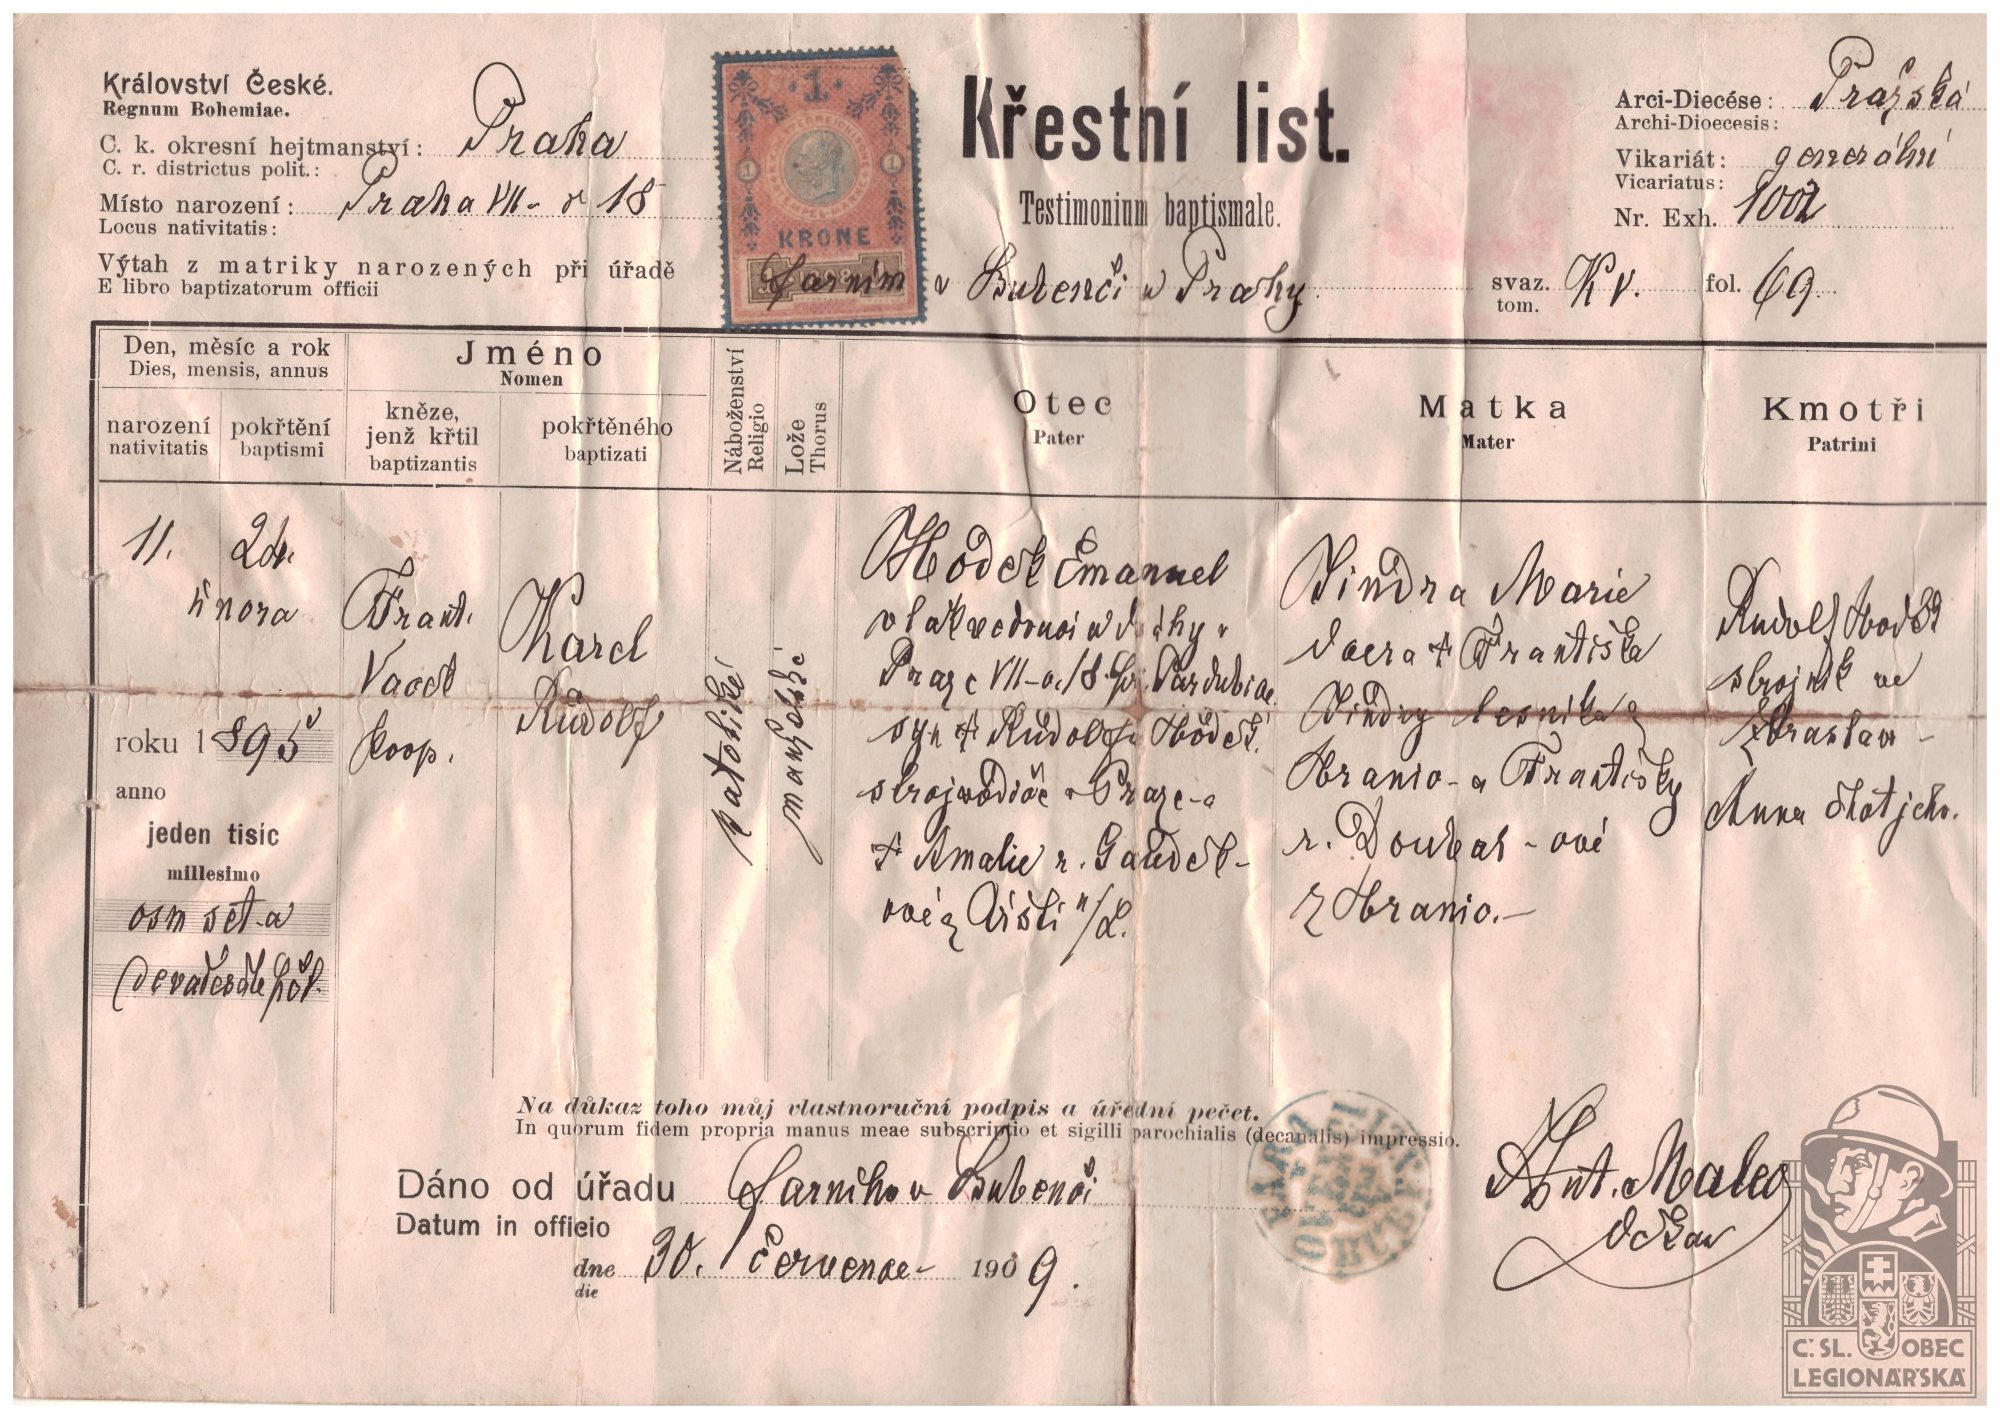 Království České.
Regnum Bohemiae.
C. k. okresní hejtmanství: Praha
C. r. districtus polit.:
Místo narození: Praha VII - č 18
Locus nativitatis:
Výtah z matriky narozených při úřadě farním v Bubenči u Prahy
E libro baptizatorum officii
1
KRONE
Křestní list.
Testimonium baptismale.
Arci-Diecése: Pražská
Archi-Dioecesis:
Vikariát: generální
Vicariatus:
Nr. Exh. 1002
svaz. XV. fol. 69
tom.
Den, měsíc a rok
Dies, mensis, annus
narození
nativitatis
pokřtění
baptismi
Jméno
Nomen
kněze,
jenž křtil
baptizantis
pokřtěného
baptizati
Náboženství
Religio
Lože
Thorus
Otec
Pater
Matka
Mater
Kmotři
Patrini
11. 24.
února
roku 1895
anno
jeden tisíc
millesimo
osm set a
devadesáte pět.
Frant.
koop.
Karel
Rudolf
katolické
manželské
Hodek Emanuel
vlakvedoucí u dráhy v
Praze VII - č. 18
syn † Rudolfa Hodek
strojvůdce v Praze - a
† Amalie r.
ové z Ústí n/L.
Jindra Marie
dcera † Františka
Jindry
Hranic - a Františky
r. - ové
z Hranic. -
Rudolf Hodek
strojník ve
Zbraslavi -
Anna
Na důkaz toho můj vlastnoruční podpis a úřední pečet.
In quorum fidem propria manus meae subscriptio et sigilli parochialis (decanalis) impressio.
Dáno od úřadu farního v Bubenči
Datum in officio
dne 30. července - 1909.
die
Ant.
děkan
Č. SL. OBEC
LEGIONÁŘSKÁ